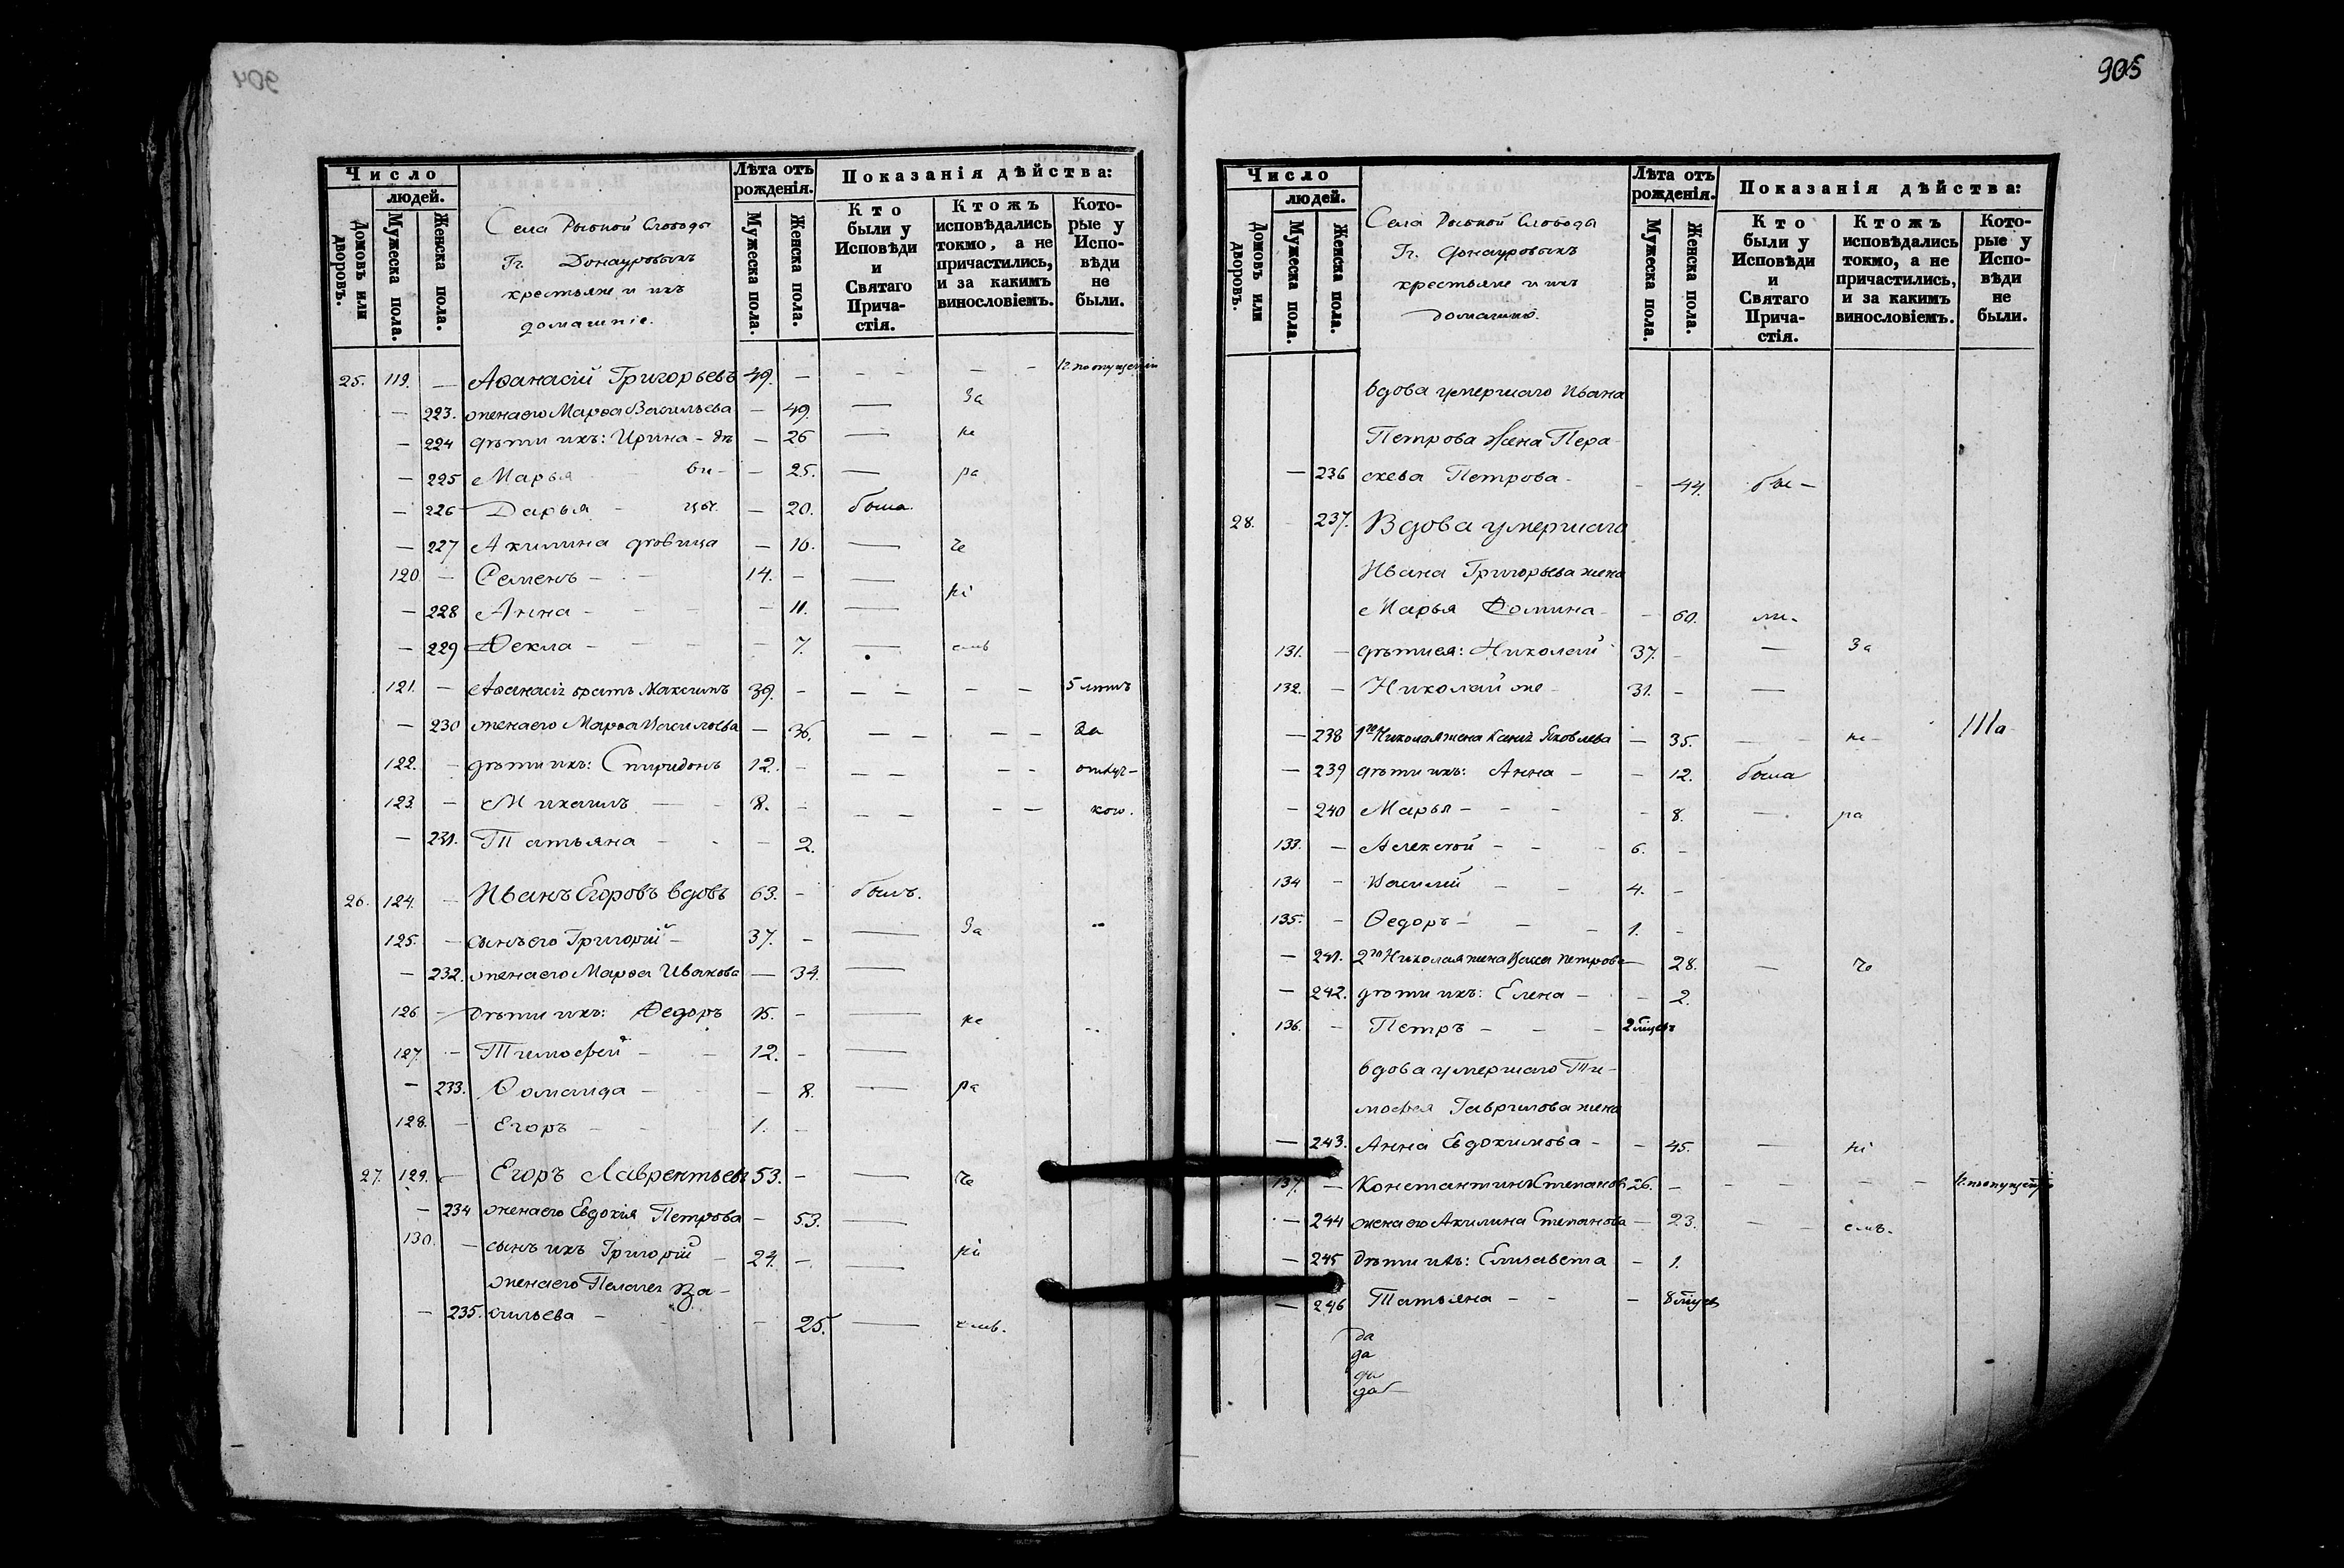 904
Число
людей.
Домовъ или дворовъ.
Мужеска пола.
Женска пола.
Села Рыбной Слободы
Гг. Донауровыхъ
крестьяне и ихъ
домашніе.
Лѣта отъ рожденія.
Мужеска пола.
Женска пола.
Показанія дѣйства:
Кто были у Исповѣди и Святаго Причастія.
Ктожъ исповѣдались токмо, а не причастились, и за какимъ винословіемъ.
Которые у Исповѣди не были.
25. 119. — Аѳанасій Григорьевъ 49. — — — — —
— 223. жена его Марѳа Васильева — 49. — За
— 224 дѣти ихъ: Ирина – дѣ — 26 — не
— 225 Марья ви- — 25. — ра
— 226 Дарья – цы. — 20. была.
— 227 Акилина дѣвица — 16. — че
120. — Семенъ – 14. – —
ні
— 228 Анна – – 11. —
— 229 Ѳекла – – 7. — емъ
121. — Аѳанасія братъ Максимъ 39. – — — — — 5 лѣтъ
— 230 жена его Марѳа Васильева — 36. — — — — За
122. – дѣти ихъ: Спиридонъ 12. – — — — — отлуч-
123. – Михаилъ — 8. – — — — — кою.
— 231. Татьяна – – 2.
26. 124. – Иванъ Егоровъ вдовъ 63. – былъ.
125. – сынъ его Григорій – 37. – — За
— 232. жена его Марѳа Иванова — 34. —
126 – Дѣти ихъ: Ѳедоръ 15. – — не
127. – Тимофей – 12. – —
— 233. Домнида – – 8. — ра
128. – Егоръ – 1. –
27. 129. – Егоръ Лаврентьевъ 53. – — че
— 234 жена его Евдокія Петрова – 53. —
130. – сынъ ихъ Григорій – 24. – — ні
жена его Пелагея Ва-
— 235. сильева – – 25. — емъ.
905
Число
людей.
Домовъ или дворовъ.
Мужеска пола.
Женска пола.
Села Рыбной Слободы
Гг. Донауровыхъ
крестьяне и ихъ
домашніе.
Лѣта отъ рожденія.
Мужеска пола.
Женска пола.
Показанія дѣйства:
Кто были у Исповѣди и Святаго Причастія.
Ктожъ исповѣдались токмо, а не причастились, и за какимъ винословіемъ.
Которые у Исповѣди не были.
вдова умершаго Ивана
Петрова жена Пера-
— 236 скева Петрова – – 44. бы –
28. – 237. Вдова умершаго
Ивана Григорьева жена
Марья Ѳомина – – 60. ли.
131. – дѣти ея: Николай 37. – — За
132. – Николай же – 31. – —
— 238 1го Николая жена Ксенія Яковлева — 35. — не-
— 239 дѣти ихъ: Анна – – 12. была
— 240 Марья – – – 8. — ра
133. – Алексѣй – – 6. –
134 – Василій – 4. –
135. – Ѳедоръ – – 1. –
— 241. 2го Николая жена Васса Петрова — 28. — че
— 242. дѣти ихъ: Елена – – 2.
136. – Петръ – – 2 мцевъ
вдова умершаго Ти-
мофея Гаврилова жена
— 243. Анна Евдокимова – – 45. — ні
137. – Константинъ Степановъ 26. – — — — —
— 244 жена его Акилина Степанова — 23. — емъ.
— 245 дѣти ихъ: Елизавета – 1.
— 246 Татьяна – – – 8 мцевъ
да
да